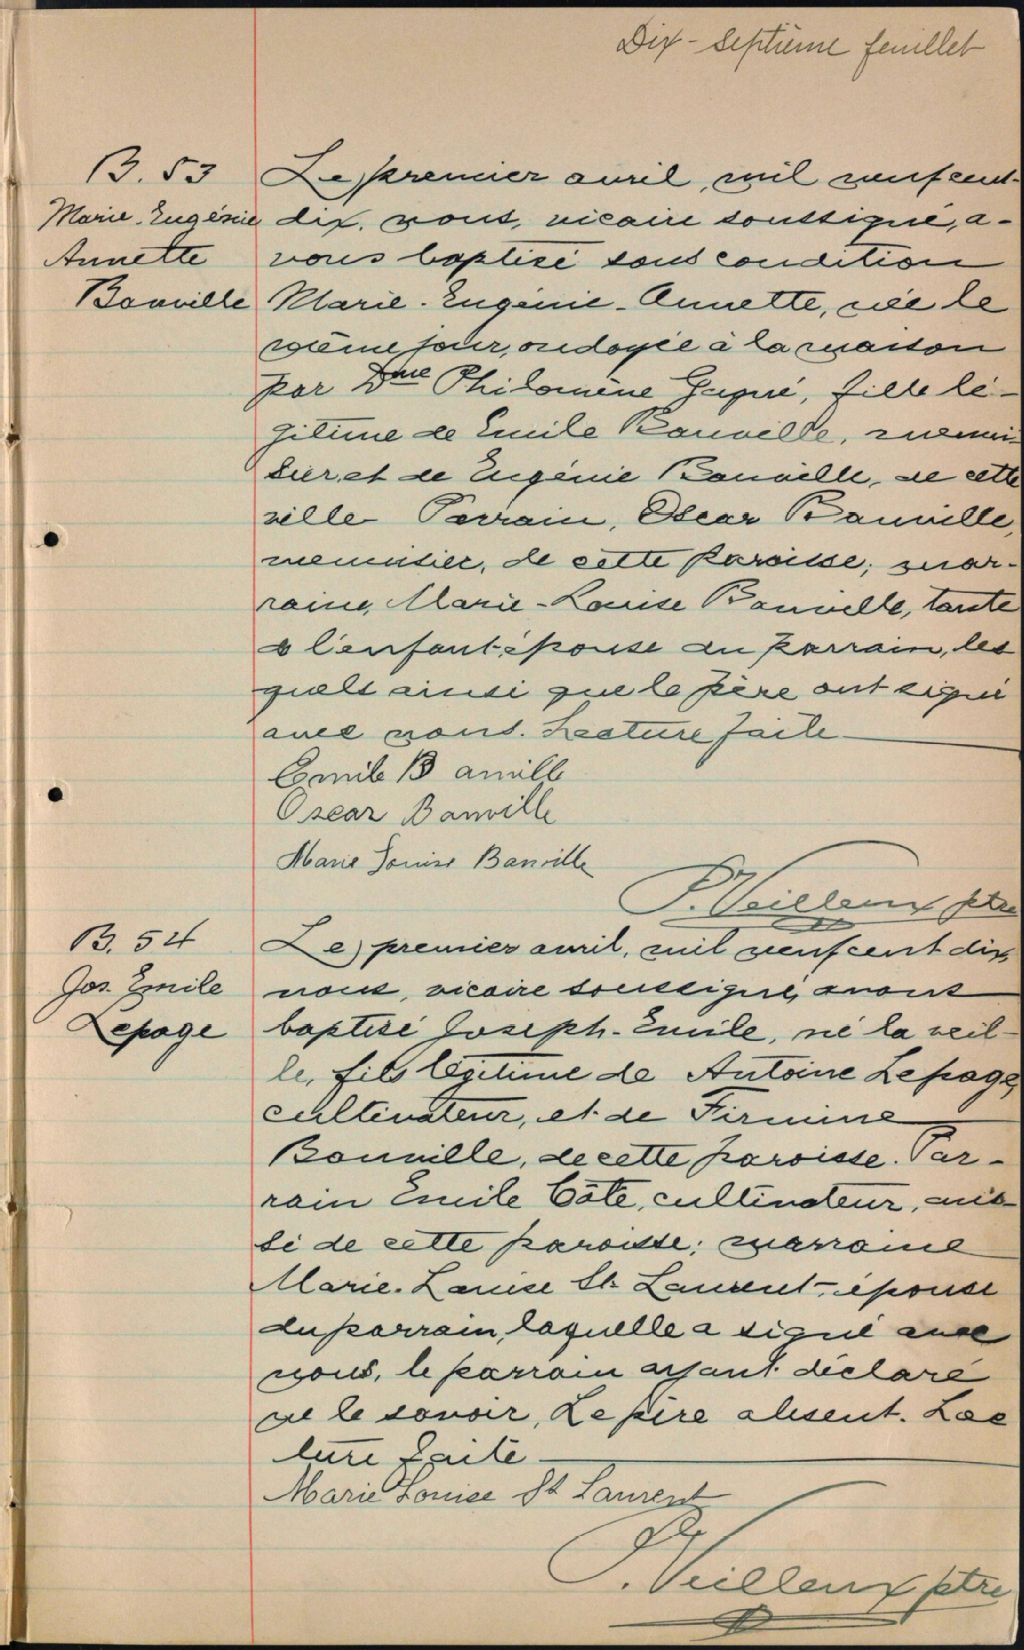 Dix-Septième feuillet
B. 53
Marie-Eugénie
Annette
Banville
Le premier avril, mil neuf cent-
dix, nous, vicaire soussigné, a-
vons baptisé sous condition
Marie-Eugénie-Annette, née le
même jour, ondoyée à la maison
par Dme Philomène Gagné, fille lé-
gitime de Emile Banville, menui-
sier, et de Eugénie Banville, de cette
ville Parrain, Oscar Banville,
menuisier, de cette paroisse; mar-
raine, Marie-Louise Banville, tante
à l'enfant, épouse du parrain, les
quels ainsi que le père ont signé
avec nous. Lecture faite
Emile Banville
Oscar Banville
Marie Louise Banville
P. Veilleux ptre
B. 54
Jos. Emile
Lepage
Le premier avril, mil neuf cent dix,
nous, vicaire soussigné, avons
baptisé Joseph-Emile, né la veil-
le, fils légitime de Antoine Lepage,
cultivateur, et de Firmine
Banville, de cette paroisse. Par-
rain Emile Côté, cultivateur, aus-
si de cette paroisse; marraine
Marie-Louise St-Laurent, épouse
du parrain, laquelle a signé avec
nous, le parrain ayant déclaré
ne le savoir, Le père absent. Lec
ture faite
Marie Louise St Laurent
P. Veilleux ptre